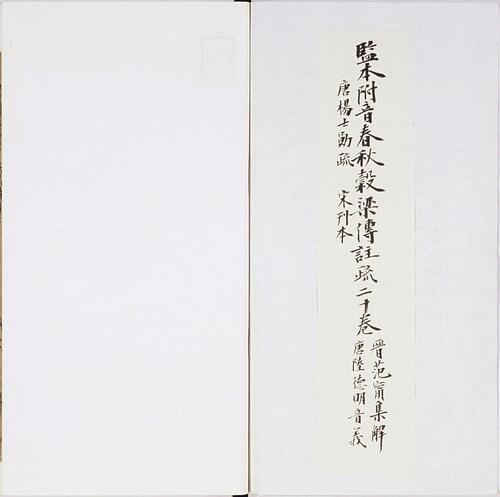 監本附音春秋穀梁傳註疏二十卷
晉范甯集解
唐陸德明音義
唐楊士勛疏 宋刊本